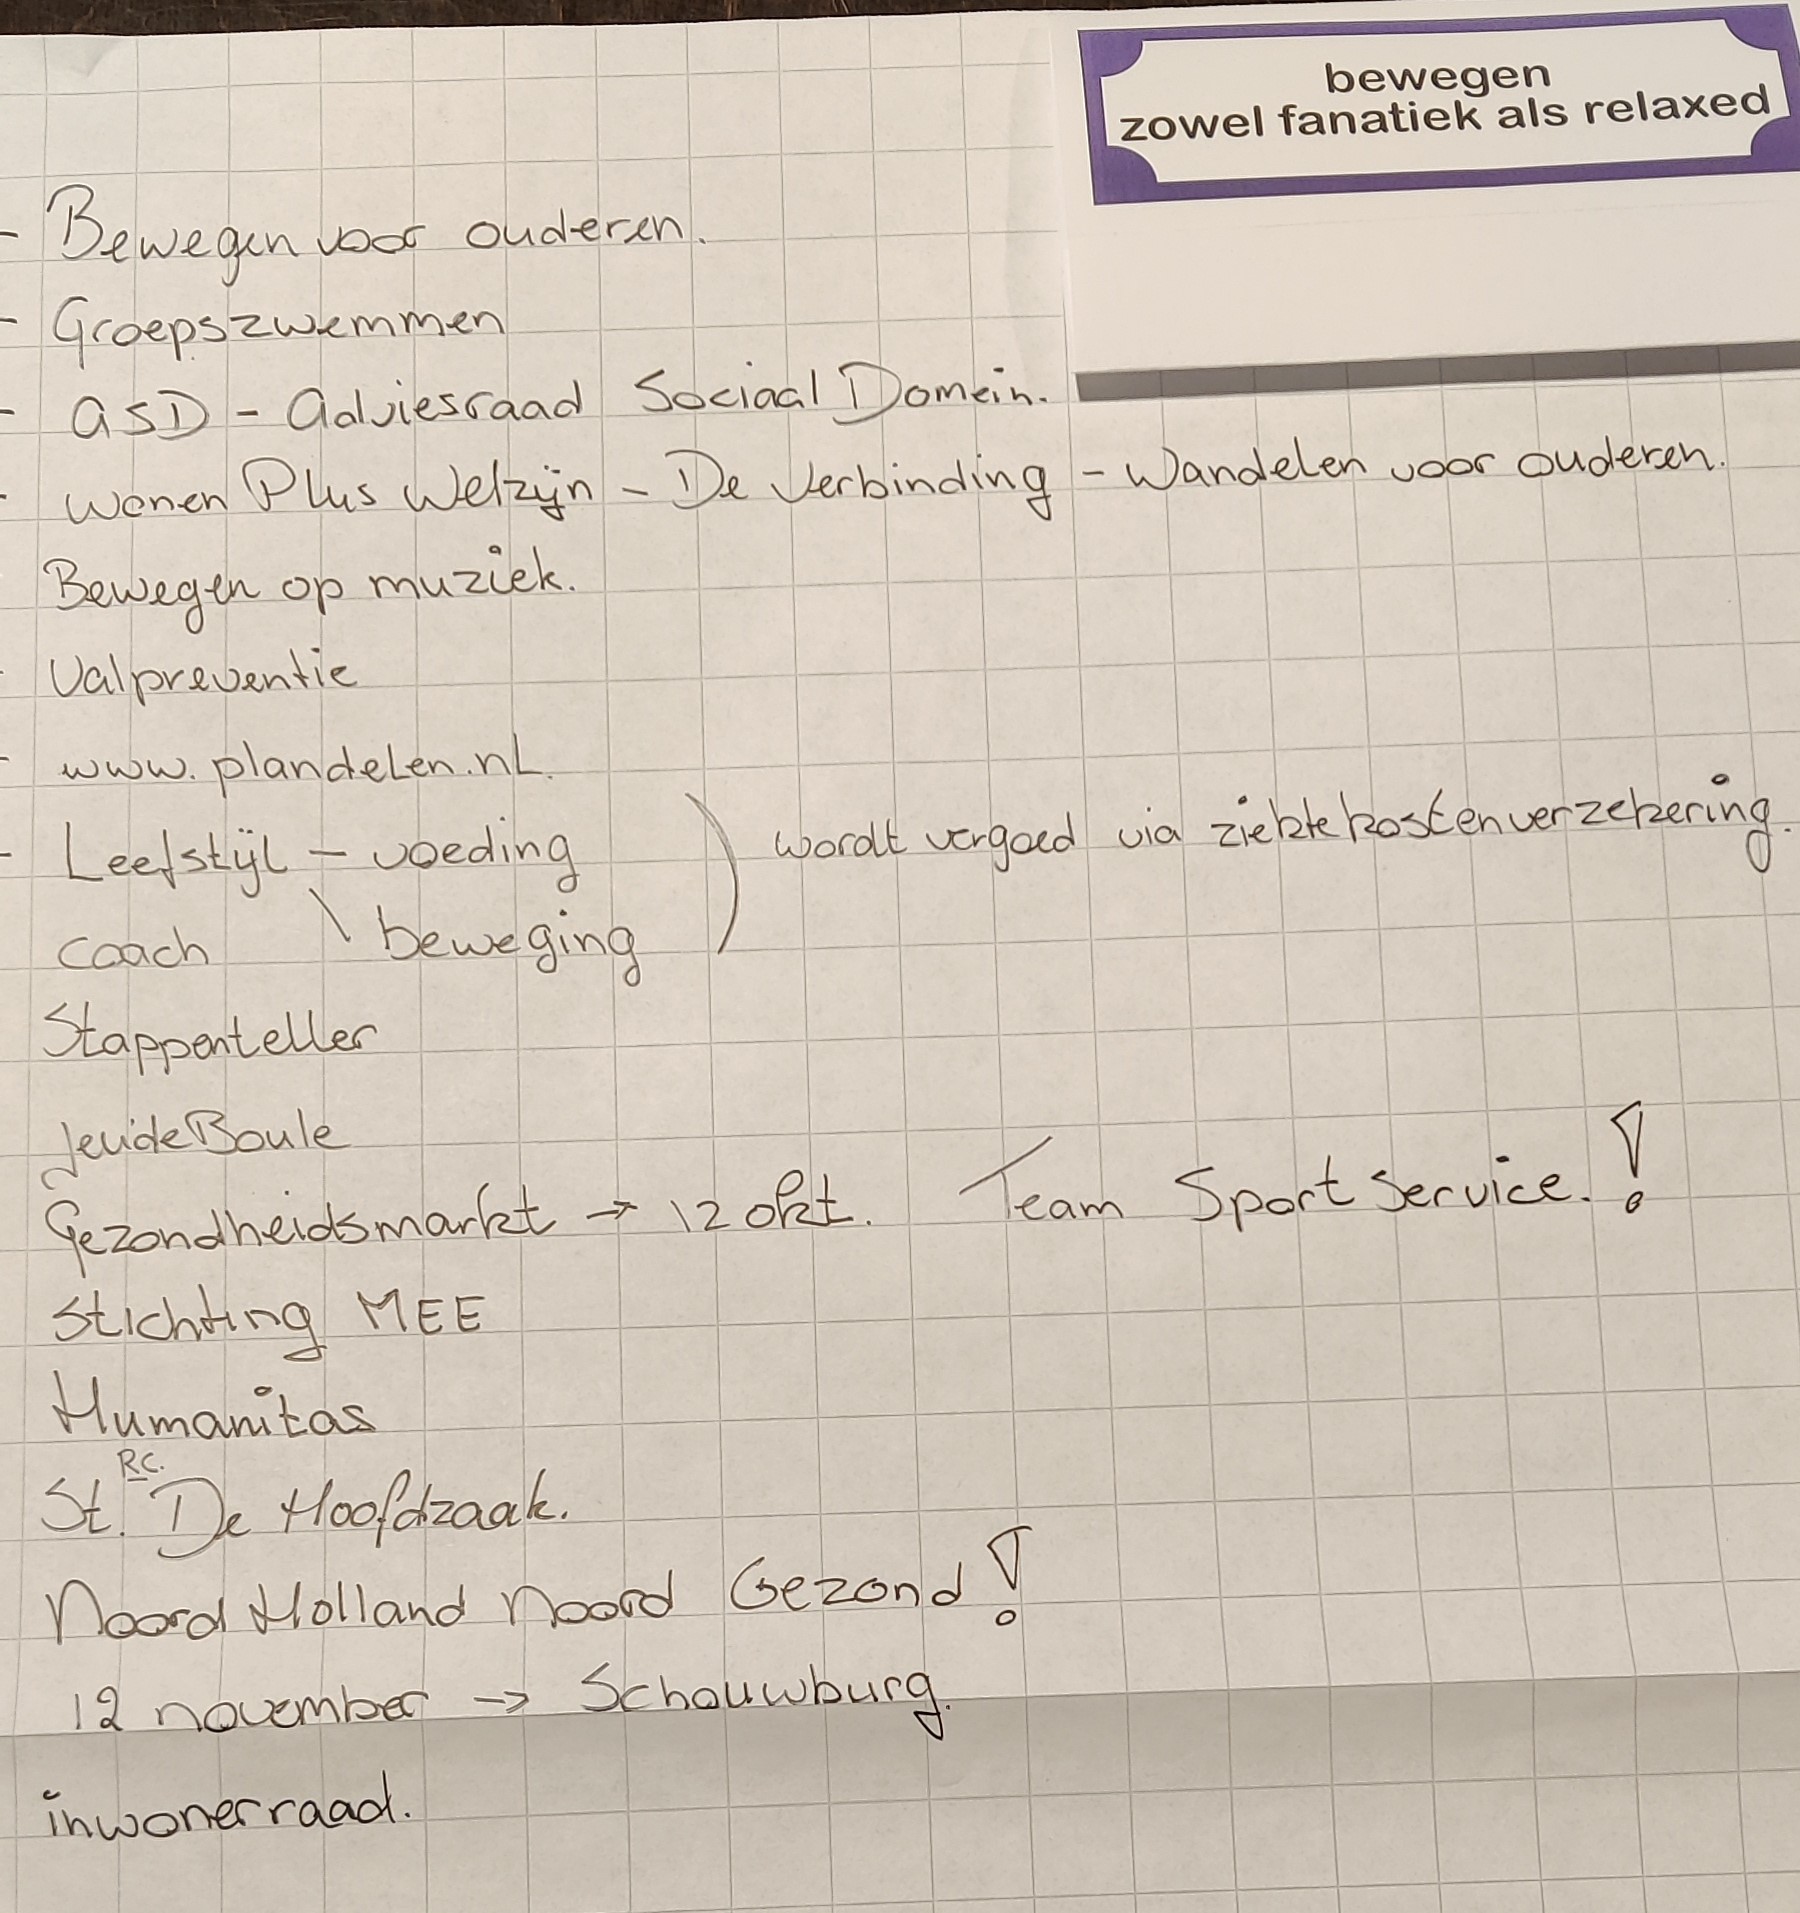 bewegen
zowel fanatiek als relaxed
- Bewegen voor ouderen.
- Groepszwemmen
- ASD - Adviesraad Sociaal Domein.
- Wonen Plus Welzijn - De Verbinding - Wandelen voor ouderen.
Bewegen op muziek.
- Valpreventie
- www.plandelen.nl.
- Leefstijl - voeding ) wordt vergoed via ziektekostenverzekering.
coach \ beweging
Stappenteller
jeudeBoule
Gezondheidsmarkt → 12 okt. Team Sportservice. !
Stichting MEE
Humanitas
R.C.
St. De Hoofdzaak.
Noord Holland Noord Gezond !
12 november → Schouwburg.
inwonerraad.